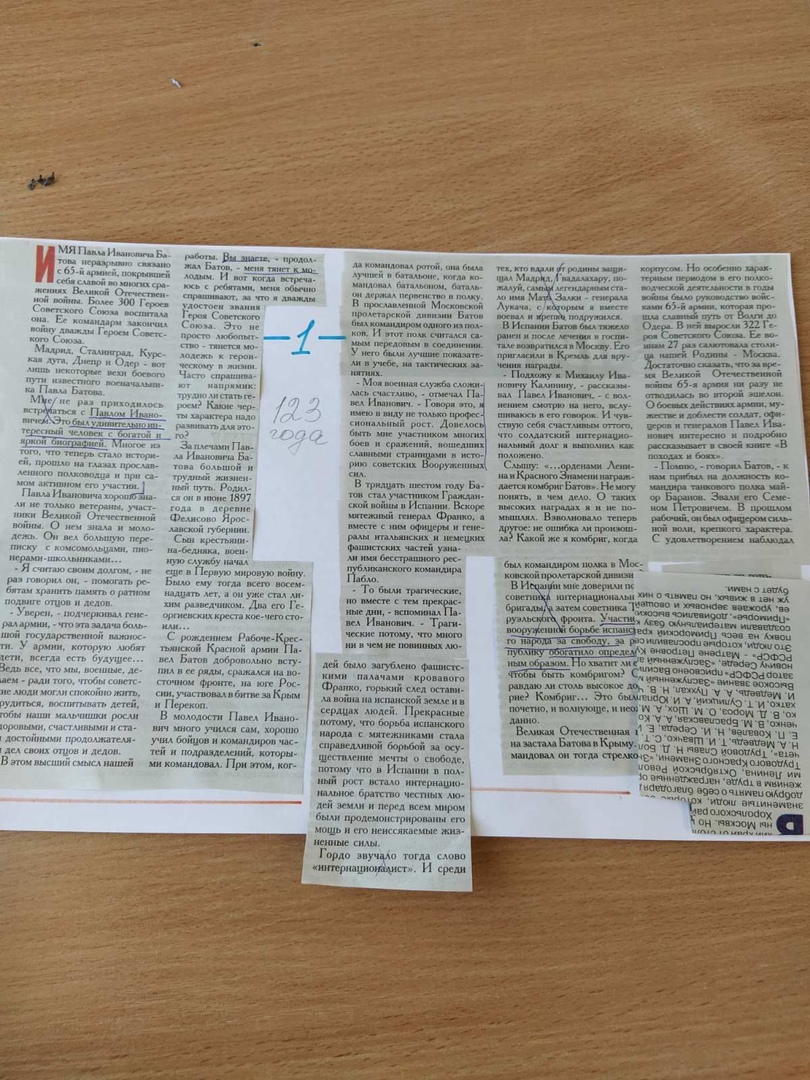 ИМЯ Павла Ивановича Ба-
това неразрывно связано
с 65-й армией, покрывшей
себя славой во многих сра-
жениях Великой Отечествен-
ной войны. Более 300 Героев
Советского Союза воспитала
она. Ее командарм закончил
войну дважды Героем Советс-
кого Союза.
Мадрид, Сталинград, Курс-
кая дуга, Днепр и Одер - вот
лишь некоторые вехи боевого
пути известного военачальни-
ка Павла Батова.
Мне не раз приходилось
встречаться с Павлом Ивано-
вичем. Это был удивительно ин-
тересный человек с богатой и
яркой биографией. Многое из
того, что теперь стало истори-
ей, прошло на глазах прослав-
ленного полководца и при са-
мом активном его участии.
Павла Ивановича хорошо зна-
ли не только ветераны, участ-
ники Великой Отечественной
войны. О нем знала и моло-
дежь. Он вел большую пере-
писку с комсомольцами, пио-
нерами-школьниками...
- Я считаю своим долгом, - не
раз говорил он, - помогать ре-
бятам хранить память о ратном
подвиге отцов и дедов.
- Уверен, - подчеркивал гене-
рал армии, - что эта задача боль-
шой государственной важнос-
ти. У армии, которую любят
дети, всегда есть будущее...
Ведь все, что мы, военные, де-
лаем - ради того, чтобы советс-
кие люди могли спокойно жить,
трудиться, воспитывать детей,
чтобы наши мальчишки росли
здоровыми, счастливыми и ста-
ли достойными продолжателя-
ми дел своих отцов и дедов.
В этом высший смысл нашей
работы. Вы знаете, - продол-
жал Батов, - меня тянет к мо-
лодым. И вот когда встреча-
юсь с ребятами, меня обычно
спрашивают, за что я дважды
удостоен звания
Героя Советского
Союза. Это не
просто любопыт-
ство - тянется мо-
лодежь к герои-
ческому в жизни.
Часто спрашива-
ют напрямик:
трудно ли стать ге-
роем? Какие чер-
ты характера надо
развивать для это-
го?
За плечами Пав-
ла Ивановича Ба-
това большой и
трудный жизнен-
ный путь. Родил-
ся он в июне 1897
года в деревне
Фелисово Ярос-
лавской губернии.
Сын крестьяни-
на-бедняка, воен-
ную службу начал
еще в Первую мировую войну.
Было ему тогда всего восем-
надцать лет, а он уже стал ли-
хим разведчиком. Два его Ге-
оргиевских креста кое-чего сто-
или...
С рождением Рабоче-Крес-
тьянской Красной армии Па-
вел Батов добровольно всту-
пил в ее ряды, сражался на во-
сточном фронте, на юге Рос-
сии, участвовал в битве за Крым
и Перекоп.
В молодости Павел Ивано-
вич много учился сам, хорошо
учил бойцов и командиров час-
тей и подразделений, которы-
ми командовал. При этом, ког-
1
123
года
да командовал ротой, она была
лучшей в батальоне, когда ко-
мандовал батальоном, баталь-
он держал первенство в полку.
В прославленной Московской
пролетарской дивизии Батов
был командиром одного из пол-
ков. И этот полк считался са-
мым передовым в соединении.
У него были лучшие показате-
ли в учебе, на тактических за-
нятиях.
- Моя военная служба сложи-
лась счастливо, - отмечал Па-
вел Иванович. - Говоря это, я
имею в виду не только профес-
сиональный рост. Довелось
быть мне участником многих
боев и сражений, вошедших
славными страницами в исто-
рию советских Вооруженных
сил.
В тридцать шестом году Ба-
тов стал участником Граждан-
ской войны в Испании. Вскоре
мятежный генерал Франко, а
вместе с ним офицеры и гене-
ралы итальянских и немецких
фашистских частей узна-
ли имя бесстрашного рес-
публиканского командира
Пабло.
- То были трагические,
но вместе с тем прекрас-
ные дни, - вспоминал Па-
вел Иванович. - Траги-
ческие потому, что много
ни в чем не повинных лю-
дей было загублено фашистс-
кими палачами кровавого
Франко, горький след остави-
ла война на испанской земле и в
сердцах людей. Прекрасные
потому, что борьба испанского
народа с мятежниками стала
справедливой борьбой за осу-
ществление мечты о свободе,
потому что в Испании в пол-
ный рост встало интернацио-
нальное братство честных лю-
дей земли и перед всем миром
были продемонстрированы его
мощь и его неиссякаемые жиз-
ненные силы.
Гордо звучало тогда слово
«интернационалист». И среди
тех, кто вдали от родины защи-
щал Мадрид, Гвадалахару, по-
жалуй, самым легендарным ста-
ло имя Матэ Залки - генерала
Лукача, с которым я вместе
воевал и крепко подружился.
В Испании Батов был тяжело
ранен и после лечения в госпи-
тале возвратился в Москву. Его
пригласили в Кремль для вру-
чения награды.
- Подхожу к Михаилу Ива-
новичу Калинину, - рассказы-
вал Павел Иванович, - с вол-
нением смотрю на него, вслу-
шиваюсь в его говорок. И чув-
ствую себя счастливым оттого,
что солдатский интернацио-
нальный долг я выполнил как
положено.
Слышу: «...орденами Лени-
на и Красного Знамени награж-
дается комбриг Батов». Не могу
понять, в чем дело. О таких
высоких наградах я и не по-
мышлял. Взволновало теперь
другое: не ошибка ли произош-
ла? Какой же я комбриг, когда
был командиром полка в Мос-
ковской пролетарской дивизи
В Испании мне доверили по
советника интернациональн
бригады, затем советника Т
руэльского фронта. Участи
вооруженной борьбе испанс
го народа за свободу, за ре
публику обогатило определ
ным образом. Но хватит ли
чтобы быть комбригом?
равдаю ли столь высокое до
рие? Комбриг... Это был
почетно, и волнующе, и нео
данно.
Великая Отечественная
на застала Батова в Крыму.
мандовал он тогда стрелко
корпусом. Но особенно харак-
терным периодом в его полко-
водческой деятельности в годы
войны было руководство войс-
ками 65-й армии, которая про-
шла славный путь от Волги до
Одера. В ней выросли 322 Ге-
роя Советского Союза. Ее вои-
нам 27 раз салютовала столи-
ца нашей Родины - Москва.
Достаточно сказать, что за вре-
мя Великой Отечественной
войны 65-я армия ни разу не
отводилась во второй эшелон.
О боевых действиях армии, му-
жестве и доблести солдат, офи-
церов и генералов Павел Ива-
нович интересно и подробно
рассказывает в своей книге «В
походах и боях».
- Помню, - говорил Батов, - к
нам прибыл на должность ко-
мандира танкового полка май-
ор Баранов. Звали его Семе-
ном Петровичем. В прошлом
рабочий, он был офицером силь-
ной воли, крепкого характера.
С удовольствием наблюдал
В
ны Москвы. Но
Хорольского рай
знаменитые люди, которые
добрую память о себе благодаря
жениям в труде, награжденные ор
ми Ленина, Октябрьской Револ
Трудового Красного Знамени, «З
чета», Трудовой Славы Н. Д. Бол
Н. А. Медведь, Т. И. Швачко, С. Т.
Е. П. Ковалев, Н. И. Середа, Е.
ненко, В. М. Браславская, А. А. К
ков, В. Д. Мороз, О. М. Шох, А. М
хатко, И. Т. Сулицкий, А. И. Юрпал
И. Медведь, А. А. Пухкал, Н. В.
Высокое звание «Заслуженный
затор РСФСР» присвоено Васили
новичу Середе, «Заслуженный а
РСФСР» - Матрене Петровне К
Это люди, которые прославили
повку на весь Приморский край
создавали материальную базу к
«Приморье», добивались высоки
ев, урожаев зерновых и овощей.
уж нет в живых, но память о них
будет с нами.